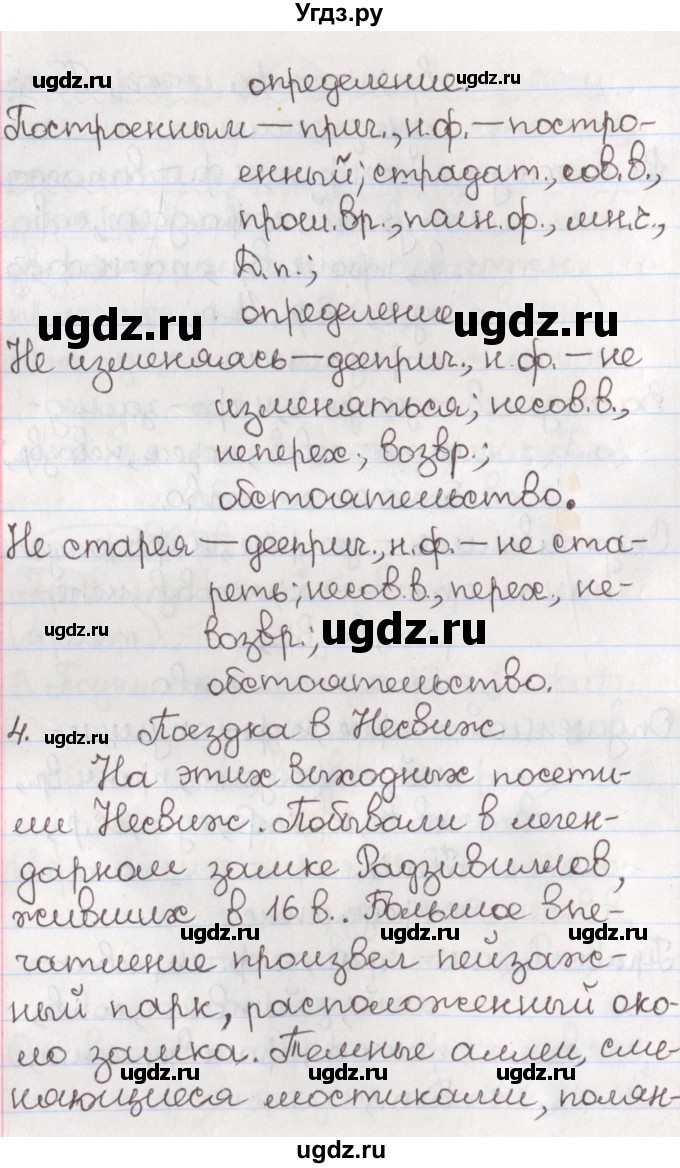 Угдз.ру
ugdz.ru определение. ugdz.ru
Построенным — прич., н.ф. — постро-
енный; страдат., сов.в.,
прош.вр., полн.ф., мн.ч.,
Д.п.;
ugdz.ru определение. ugdz.ru
Не изменялась — дееприч., н.ф. — не
изменяться; несов.в.,
неперех., возвр.;
обстоятельство.
Не старея — дееприч., н.ф. — не ста-
реть, несов.в., перех., не-
ugdz.ru возвр.; ugdz.ru
обстоятельство.
4. ugdz.ru Поездка в Несвиж
На этих выходных посети-
ли Несвиж. Побывали в леген-
дарном замке Радзивиллов,
живших в 16 в.. Большое впе-
ugdz.ru ugdz.ru ugdz.ru
чатление произвел пейзаж-
ный парк, расположенный око-
ло замка. Темные аллеи, сме-
ugdz.ru ugdz.ru ugdz.ru
няющиеся мостиками, полян-
ugdz.ru